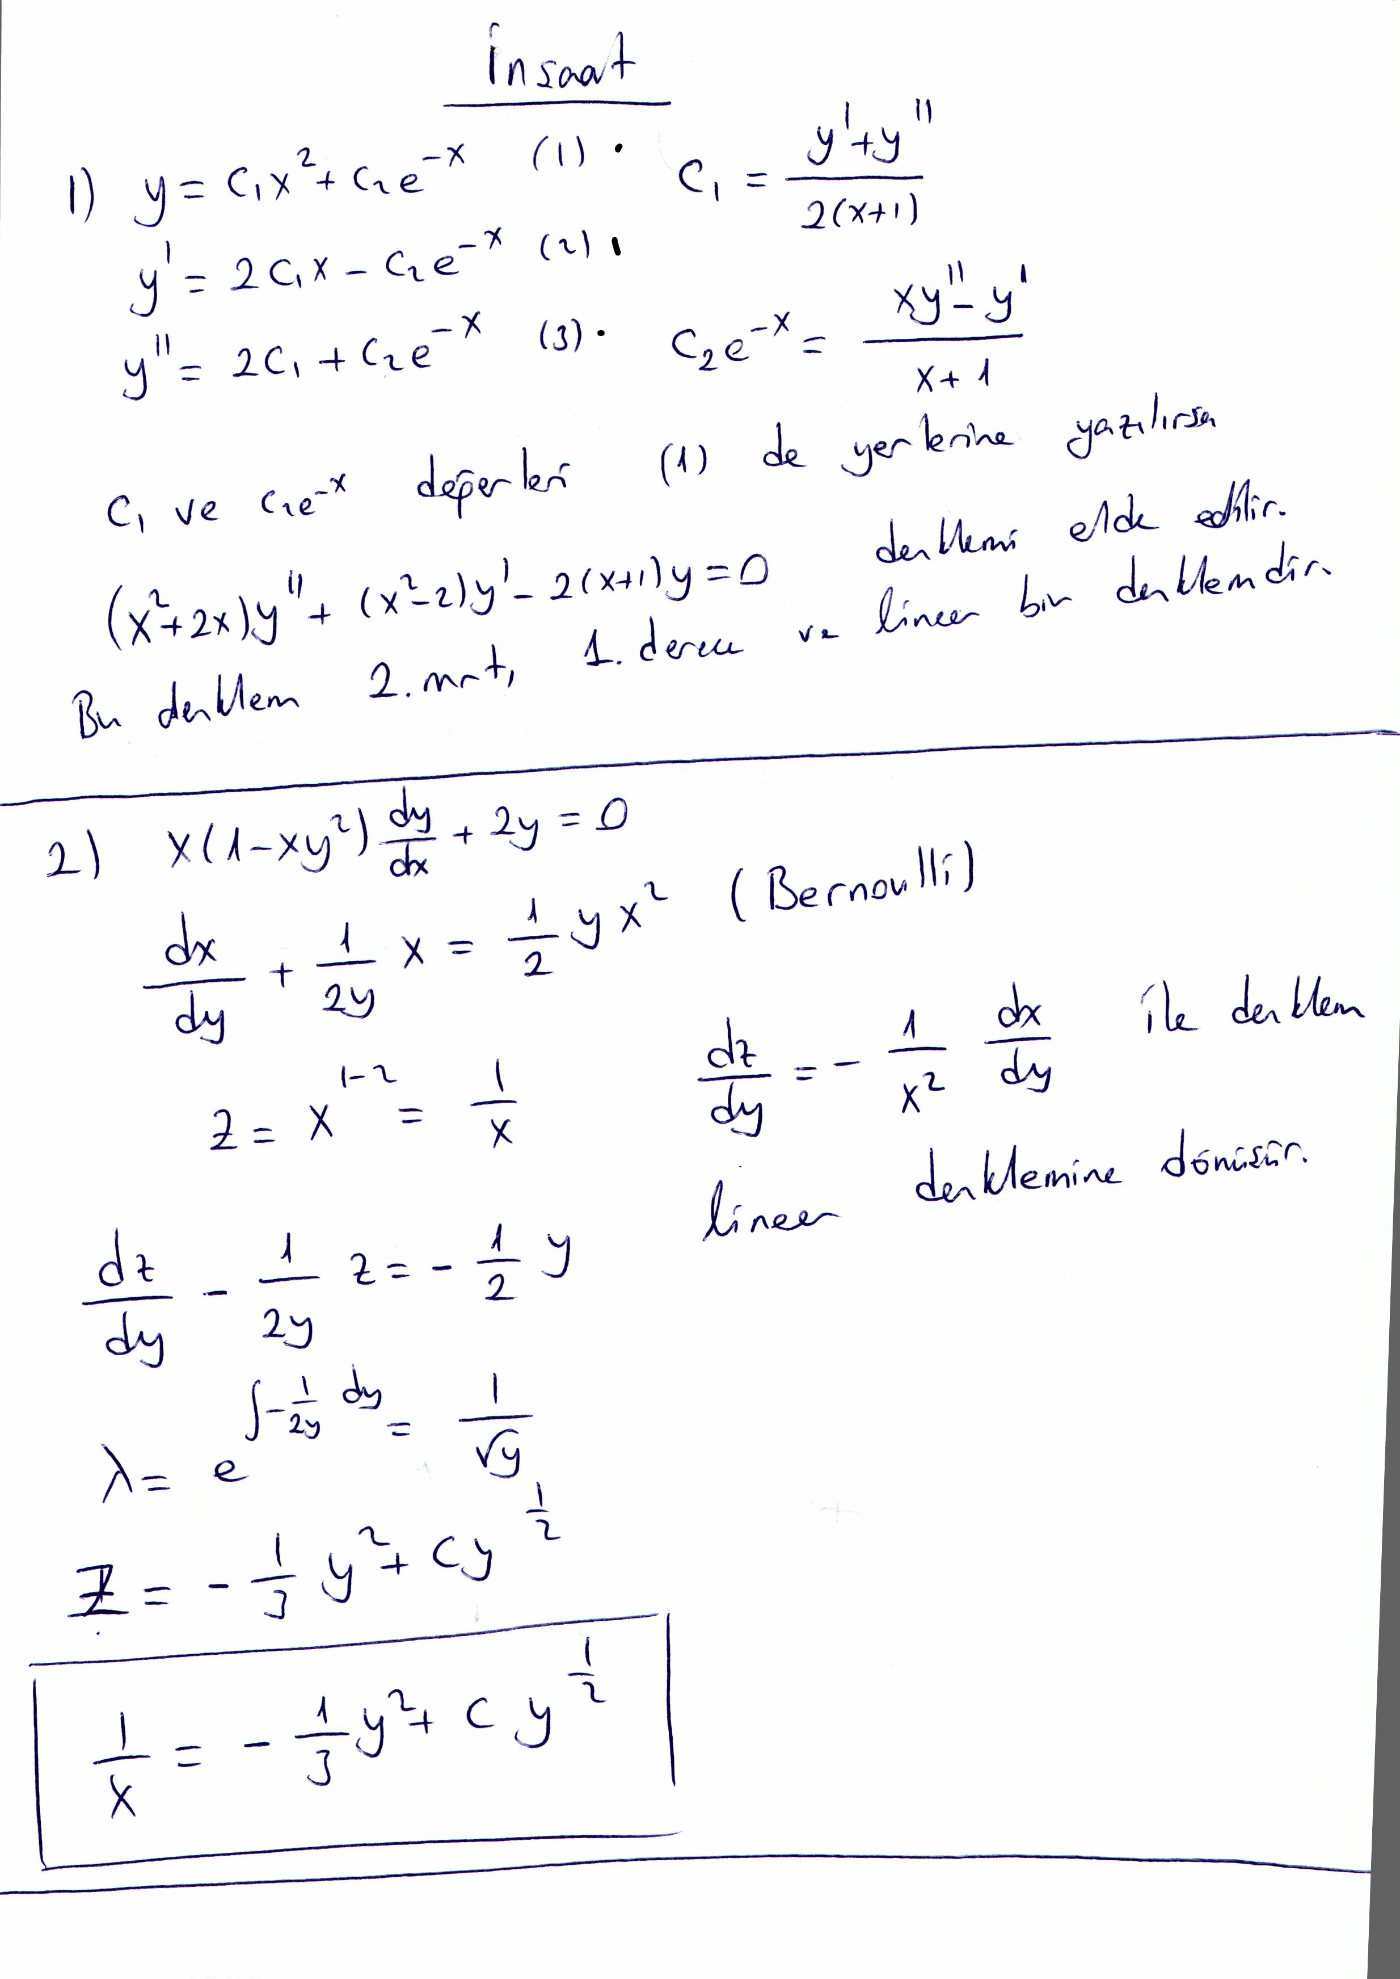 İnşaat
1) y = c₁x² + c₂e^{-x} (1) · c₁ = (y' + y'')/(2(x+1))
y' = 2c₁x - c₂e^{-x} (2) ·
y'' = 2c₁ + c₂e^{-x} (3) · c₂e^{-x} = (xy'' - y')/(x+1)
c₁ ve c₂e^{-x} değerleri (1) de yerlerine yazılırsa
(x²+2x)y'' + (x²-2)y' - 2(x+1)y = 0 denklemi elde edilir.
Bu denklem 2. mrt, 1. derece ve lineer bir denklemdir.
2) x(1-xy²) dy/dx + 2y = 0
dx/dy + 1/(2y) x = 1/2 y x² (Bernoulli)
z = x^{1-2} = 1/x dz/dy = - 1/x² dx/dy ile denklem
lineer denklemine dönüşür.
dz/dy - 1/(2y) z = - 1/2 y
λ = e^{∫ - 1/(2y) dy} = 1/√y
z = - 1/3 y² + cy^{1/2}
1/x = - 1/3 y² + c y^{1/2}